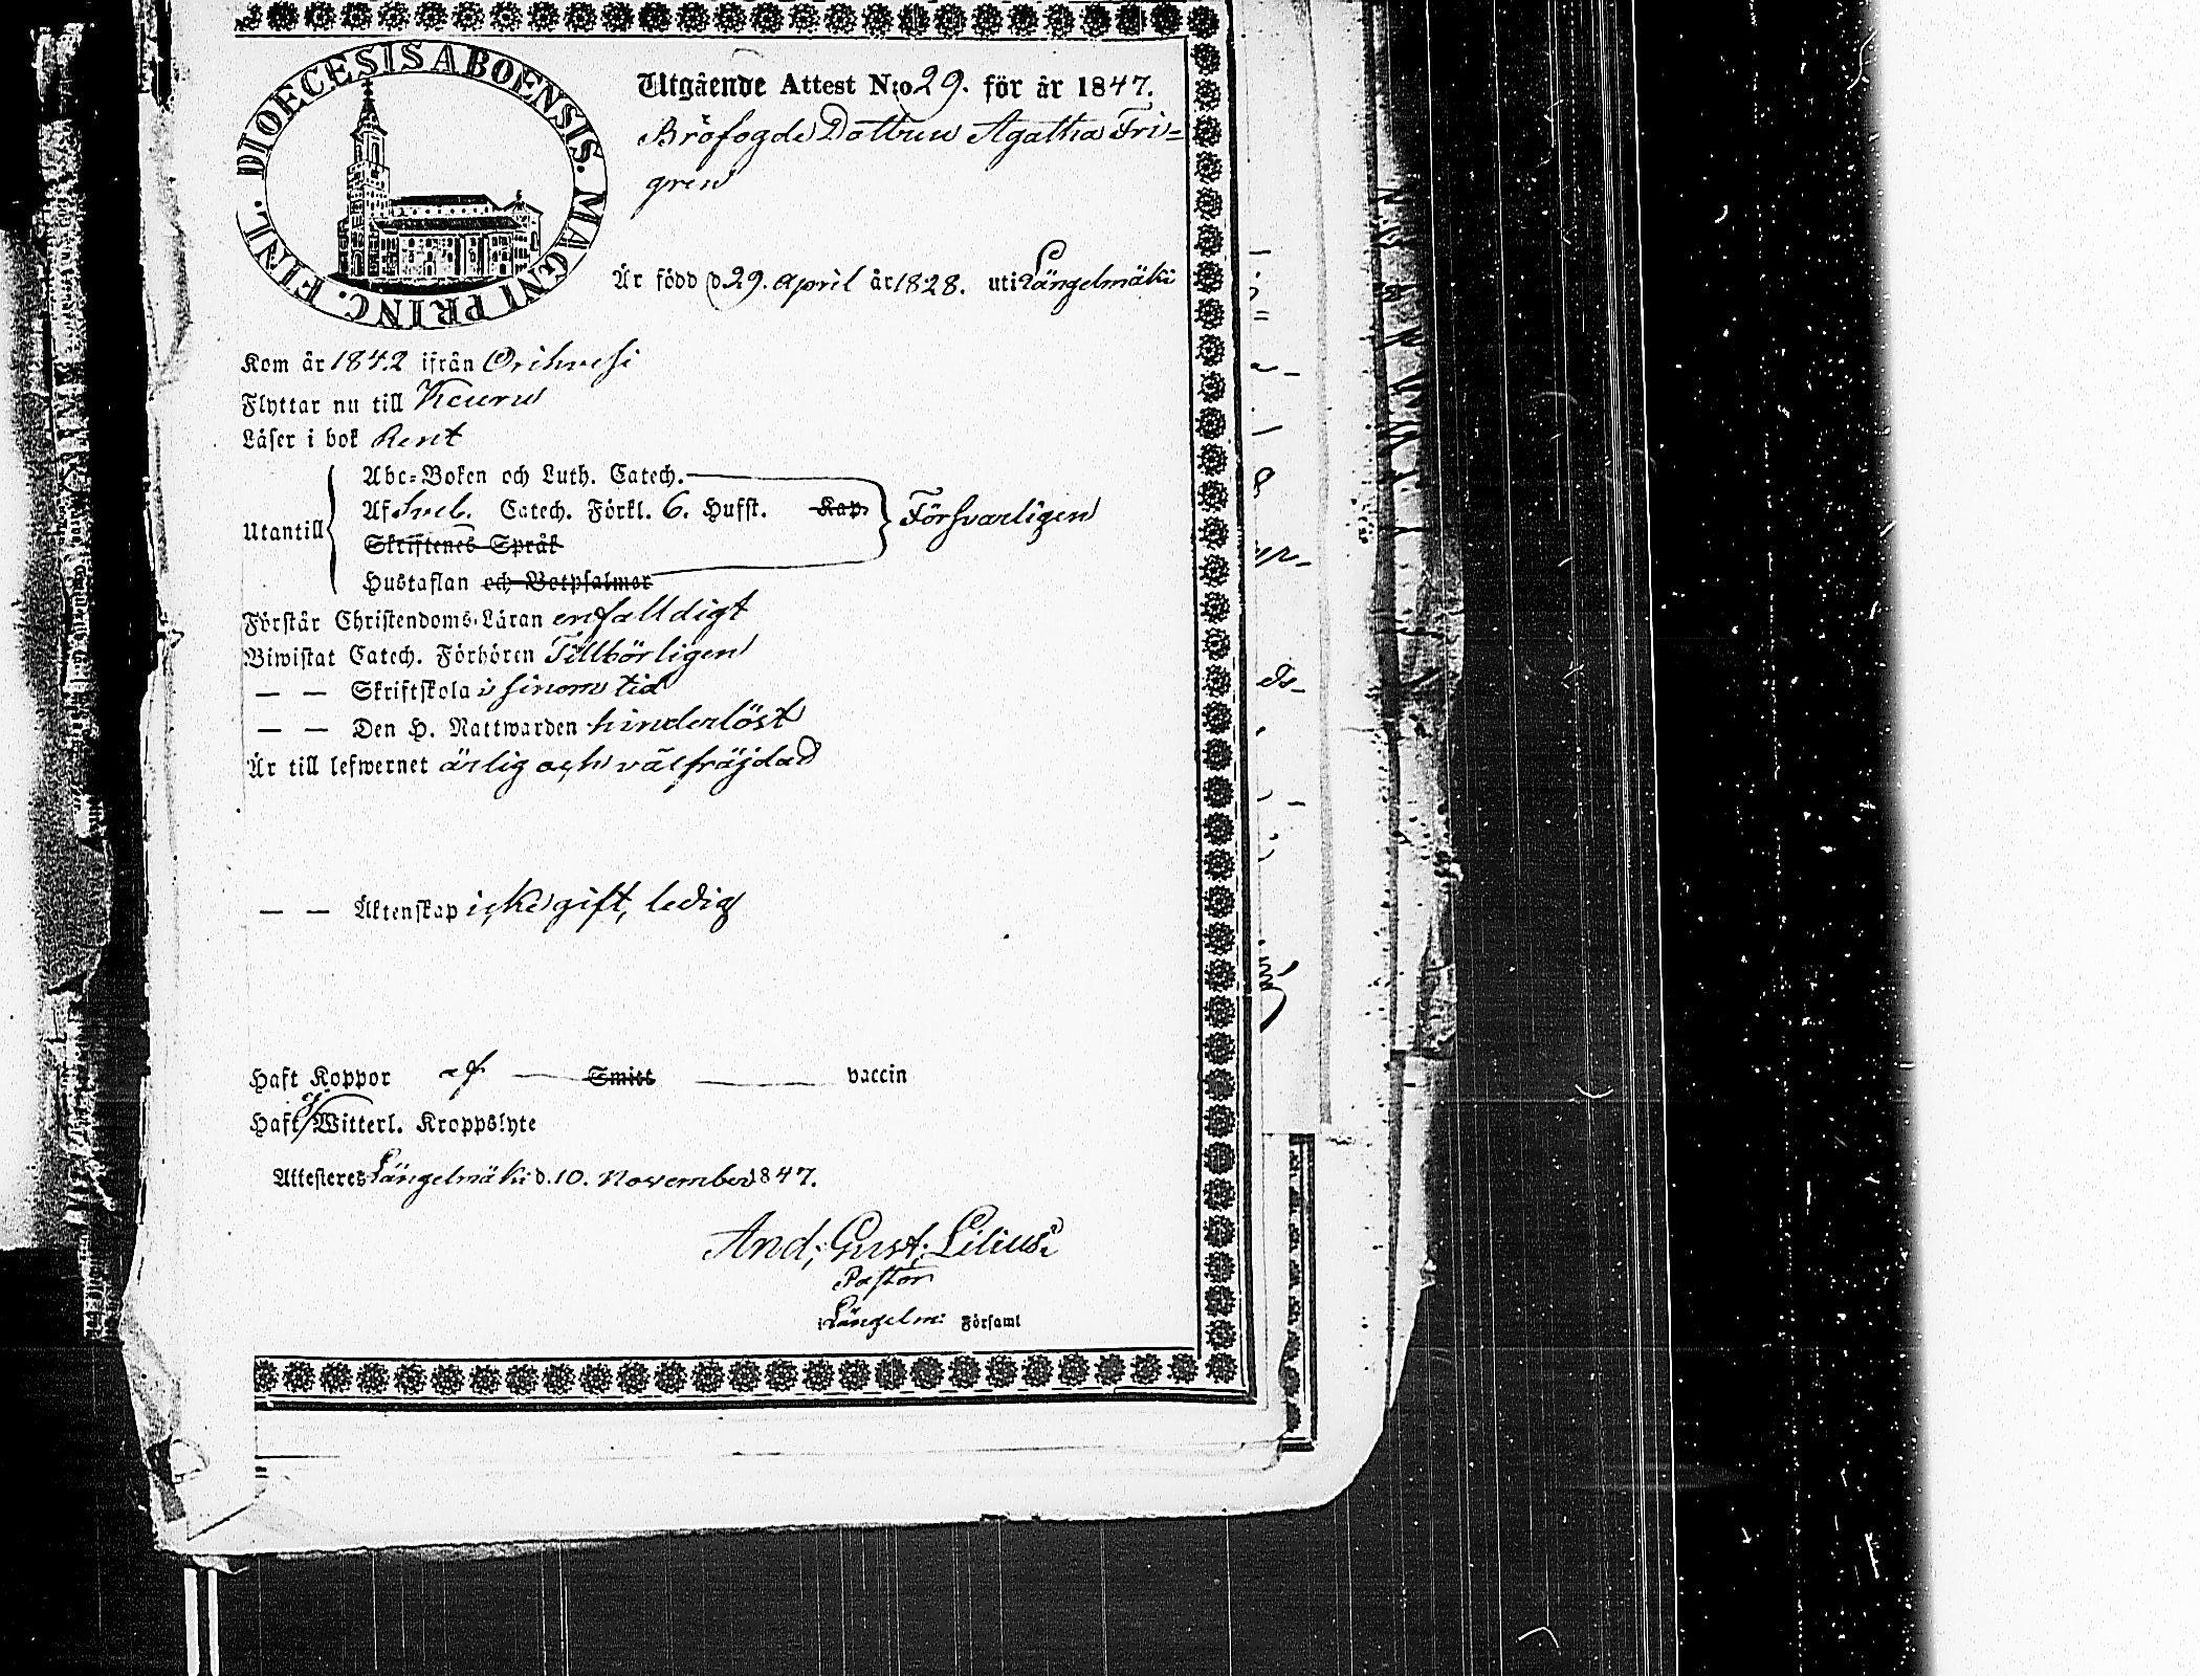 DIOECESIS ABOENSIS. MAGNI PRINC. FINL.
Utgående Attest N:o 29. för år 1847.
Brofogde Dottren Agatha Fri=
gren
Är född d 29. April år 1828. uti Längelmäki
Kom år 1842 ifrån Orihvesi
Flyttar nu till Keuru
Läser i bok Rent
Utantill
Abc=Boken och Luth. Catech.
Af Sveb. Catech. Förkl. 6. Hufst. Kap. Försvarligen
Skriftenes Språk
Hustaflan och Botpsalmer
Förstår Christendoms-Läran enfalldigt
Biwistat Catech. Förhören Tillbörligen
— — Skriftskola i sinom tid
— — Den H. Nattwarden hinderlöst
Är till lefwernet ärlig och välfräjdad
— — Äktenskap icke gift, ledig
Haft Koppor af — Smitt — vaccin
Haft ej Witterl. Kroppslyte
Attesteres Längelmäki d. 10. November 1847.
And: Gust: Lilius.
Pastor
i Längelm: Församl